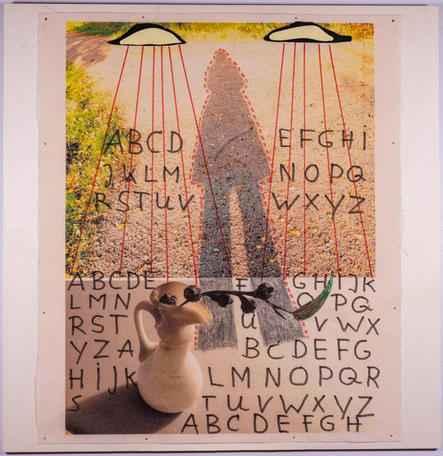 ABCD EFGHI
JKLM NOPQ
RSTUV WXYZ
ABCDE F GHIJK
LMN OPQ
RST U VWX
YZA BCDEFG
HIJK LMNOPQR
S TUVWXYZ
ABCDEFGH